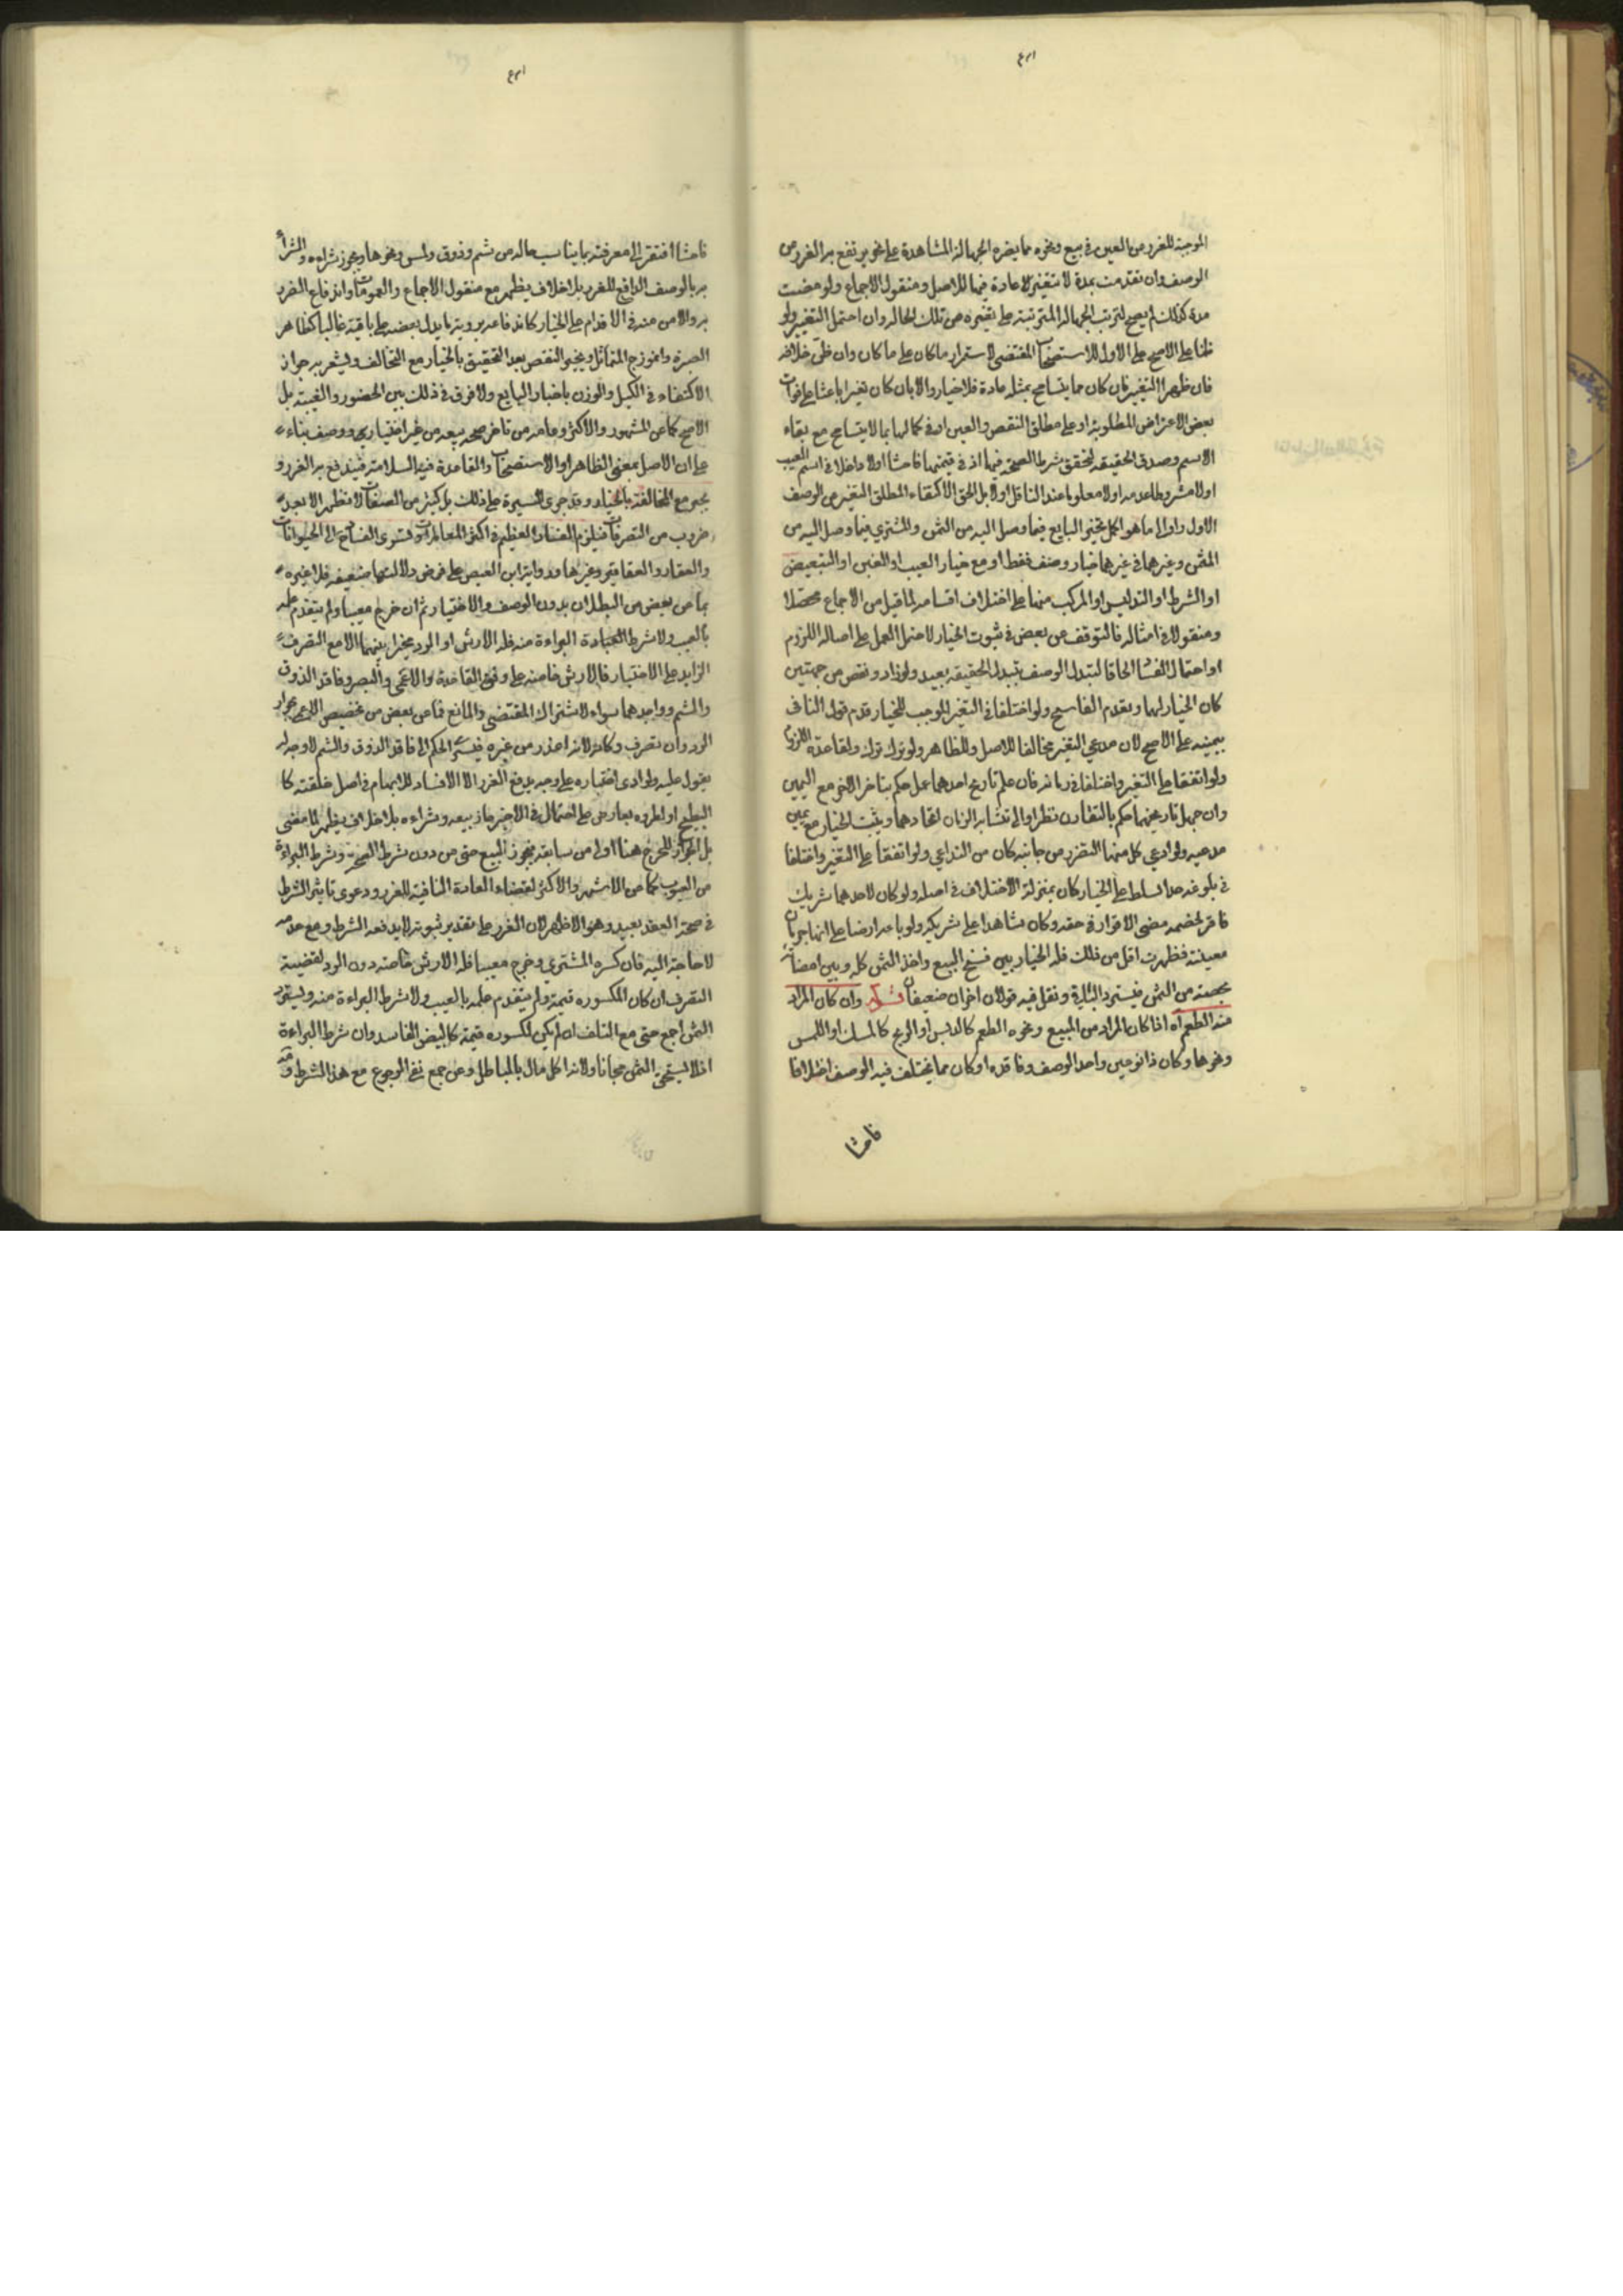 الموجبة للغرر من العين في بيع ونحوه مما يضره الجهالة المشاهدة على نحو يرتفع بر الغرر من
الوصف وان تقدمت بمدة لا تتغير لا عادة فيها للاصل ومنقول الاجماع ولو مضت
مدة كذلك لم يصح لترتب الجهالة المترتبة على تغيره من تلك الحاله وان احتمل التغيير ولو
ظنا على الاصح على الاول للاستصحاب المقتضى لاستمرار ما كان على ما كان وان ظن خلافه
فان ظهر التغيير فان كان مما يتسامح بمثله عادة فلا خيار والا بان كان تغيرا باعثا على فوات
بعض الاعراض المطلوبة او على مطلق النقص والعين او في كمالها بما لا يتسامح مع بقاء
الاسم وصدق الحقيقة لتحقق شرط الصحة فيها اذ في قيمتها فاحشا اولا داخلا في اسم العيب
اولا مشروطا عدمه اولا معلوما عند الناقل اولا بل الحق الاكتفاء المطلق التغير من الوصف
الاول واولى ما هو اكمل تخير البايع فيما وصل اليه من الثمن والمشتري فيما وصل اليه من
المثمن وغيرهما في غيرهما خيار وصف فقط او مع خيار العيب او الغبن او التبعيض
او الشرط او التدليس او المركب منها على اختلاف اقسامه لما قيل من الاجماع محصلا
ومنقولا في امثاله فالتوقف من بعض في ثبوت الخيار لاحتمال العمل على اصالة اللزوم
او احتمال الفساد الحاقا لتبدل الوصف بتبدل الحقيقة بعيد ولو زاد ونقص من جهتين
كان الخيار لهما ويقدم الفاسخ ولو اختلفا في التغير الموجب للخيار قدم قول النافى
بيمينه على الاصح لان مدعي التغير مخالفا للاصل والظاهر ولو ترك ترك ولقاعدة اللزوم
ولو اتفقا على التغير واختلفا في زمانه فان علم تاريخ احدهما عمل حكم بتاخر الاخر مع اليمين
وان جهل تاريخهما حكم بالتقارن نظرا والى تشابه الزمان اتحادهما ويثبت الخيار مع يمين
مدعيه ولو ادعي كل منهما التضرر من جانبه كان من التداعي ولو اتفقا على التغير واختلفا
في بلوغه حدا لسلط على الخيار كان بمنزلة الاختلاف في اصله ولو كان لاحدهما شريك
فاقر لخصمه مضى الاقرار في حقه وكان شاهدا على شريكه ولو باعه ارضا على انها جربان
معينة فظهرت اقل من ذلك فله الخيار بين فسخ البيع واخذ الثمن كله وبين امضائه
بحصته من الثمن فيسترد البايدة ونقل فيه قولان اخران ضعيفان قوله وان كان المراد
منه الطعم اه اذا كان المراد من المبيع ونحوه الطعم كالدبس او الريح كالمسك او اللمس
ونحوها وكان ذا نوعين واحد الوصف وفاقده او كان مما يختلف فيه الوصف اختلافا
فاحشا
فاحشا افتقر الى معرفته بما يناسب حاله من شم وذوق ولمس ونحوها ويجوز شراءه والشراء
بر بالوصف الرافع للغرر بلا خلاف يظهر مع منقول الاجماع والعمومات واندفاع الضرر
بر والامن منه في الاقدام على الخيار كاندفاعه برويتر ما يدل بعضه على باقيه غالبا كظاهر
الصبرة وانموذج المتماثل ويجبر النقص بعد التحقيق بالخيار مع التخالف وليشعر بر جواز
الاكتفاء في الكيل والوزن باخبار البايع ولا فرق في ذلك بين الحضور والغيبة بل
الاصح كما عن المشهور والاكثر وعامة من تاخر صحة بيعه من غير اختبار ووصف بناء
على ان الاصل بمعنى الظاهر او الاستصحاب والقاعدة فيه السلامة فيندفع بر الغرر و
يجبر مع المخالفة بالخيار وقد جرى السيرة على ذلك بل كثير من الصفات لا تظهر الا بعد
ضروب من التصرفات فيلزم الفساد العظيم في اكثر المعاملات وتسرى الفساد الى الحيوانات
والعقار والعقاقير وغيرها ورواية ابن العيص على فرض دلالتها ضعيفة فلا عبرة
بما من بعض من البطلان بدون الوصف والاختبار ثم ان خرج معيبا ولم يتقدم علمه
بالعيب ولا شرط البراءة منه فله الارش او الرد مخيرا بينهما الا مع التصرف
الزايد على الاختبار فالارش خاصة على وفق القاعدة والاعمى والبصير وفاقد الذوق
والشم وواجدهما سواء لاشتراك المقتضى والمانع فما عن بعض من تخصيص الاعمى بجواز
الرد وان تصرف وكانه لانه اعذر من غيره فيسري الحكم الى فاقد الذوق والشم لا وجه له
يعول عليه ولو ادى اختباره على وجه يدفع الغرر الا الافساد للابهام في اصل خلقته كا
البطيخ او لطروه بعارض على احتمال في الاخير جاز بيعه وشراءه بلا خلاف يظهر لما مضى
بل الجواز للحرج هنا اولى من سابقه فيجوز البيع حتى من دون شرط الصحة وشرط البراءة
من العيوب كما عن الاشهر والاكثر لقضاء العادة المنافية للغرر ودعوى تاثير الشرط
في صحة العقد بعيد وهو الاظهر لان الغرر على تقدير ثبوته لا يدفعه الشرط ومع عدمه
لا حاجة اليه فان كسره المشتري وخرج معيبا فله الارش خاصة دون الرد لقضية
التصرف ان كان المكسوره قيمة ولم يتقدم علمه بالعيب ولا شرط البراءة منه ويسترد
الثمن اجمع حتى مع التلف ان لم يكن لمكسوره قيمة كالبيض الفاسد وان شرط البراءة
اذ لا يستحق الثمن مجانا ولانه اكل مال بالباطل وعن جمع نفي الرجوع مع هذا الشرط و